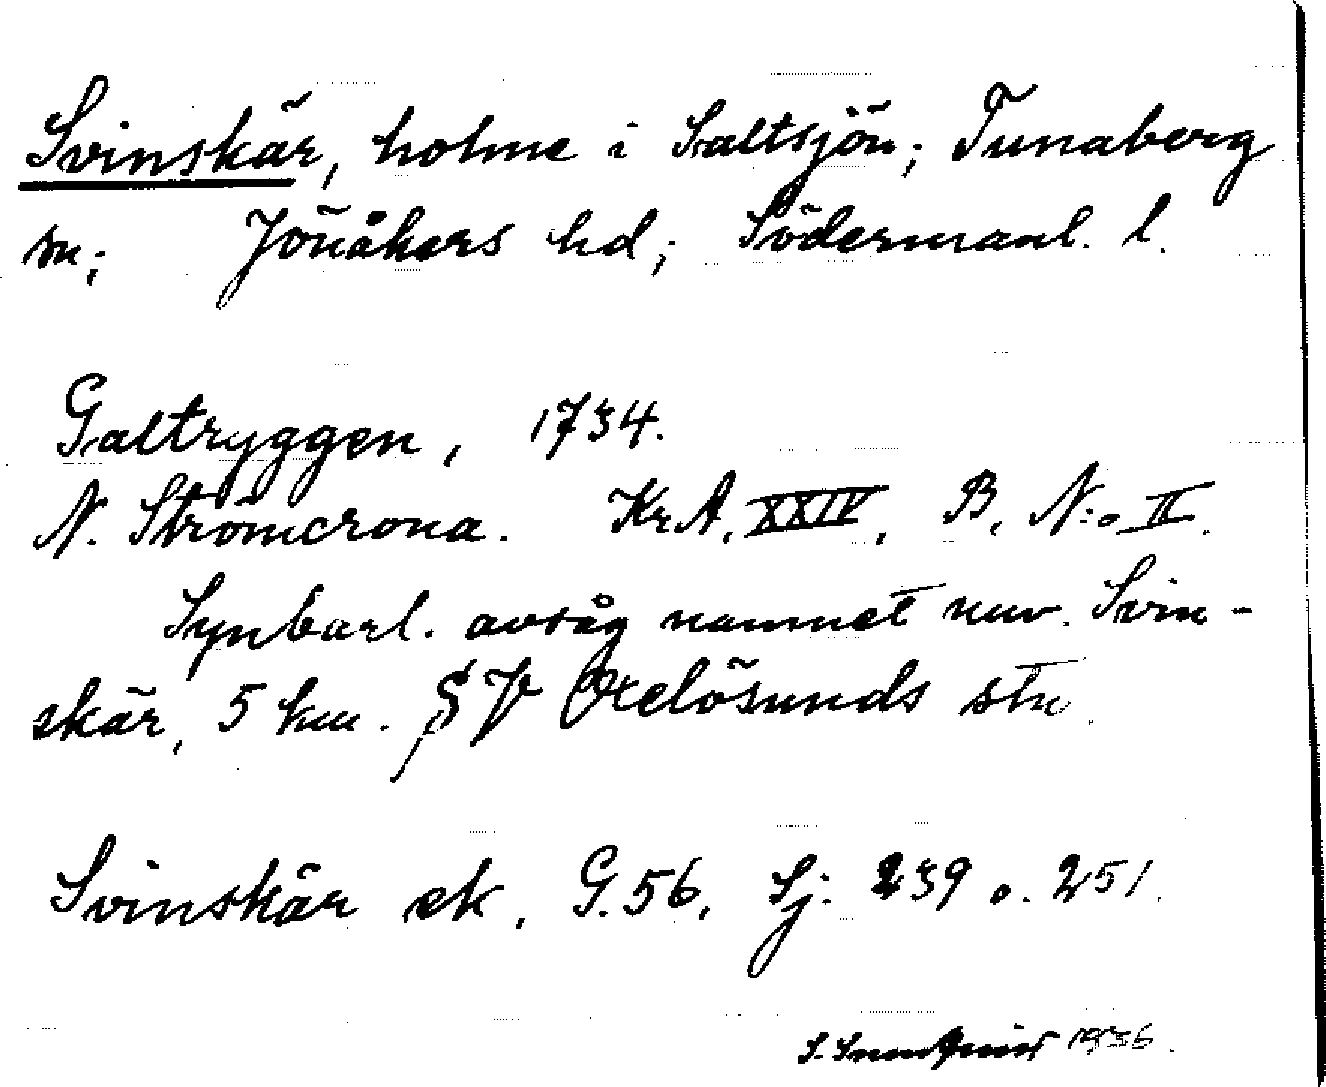 Svinskär, holme i Saltsjön; Tunaberg
sn; Jönåkers hd; Södermanl. l.
Galtryggen, 1734.
N. Strömcrona. Kr.A. XXIV, B, N:o II.
Synbarl. avsåg namnet nuv. Svin-
skär, 5 km. SV Oxelösunds stn.
Svinskär ek. G.56, Sj. 239 o. 251.
S. 1936.